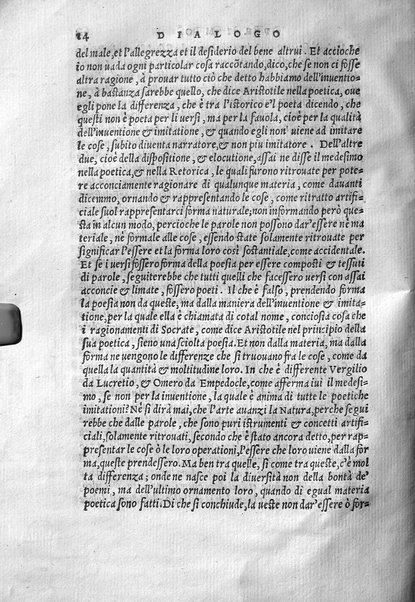 24 DIALOGO
del male, et l'allegrezza et il desiderio del bene altrui. Et accioche
io non uada ogni particolar cosa raccōtando, dico, che se non ci fosse
altra ragione, à prouar tutto ciò che detto habbiamo dell'inuentio-
ne, à bastanza sarebbe quello, che dice Aristotile nella poetica, oue
egli pone la differenza, che è tra l'istorico e'l poeta dicendo, che
questi non è poeta per li uersi, ma per la fauola, cioè per la qualità
dell'inuentione & imitatione, & quando egli non' uiene ad imitare
le cose, subito diuenta narratore, & non piu imitatore. Dell'altre
due, cioè della dispositione, & elocutione, assai ne disse il medesimo
nella poetica, & nella Retorica, le quali furono ritrouate per pote-
re acconciamente ragionare di qualunque materia, come dauanti
dicemmo, ornando & rappresentando le cose, come ritratto artifi-
ciale suol rappresentarci forma naturale, non informando però que-
sta in alcun modo, percioche le parole non possono dar'essere nè ma
teriale, nè formale alle cose, essendo state solamente ritrouate per
significar l'essere & la forma loro così sostantiale, come accidentale.
Et se i uersi fossero forma della poesia per essere composti & tessuti
di parole, seguiterebbe che tutti quelli che facessero uersi con assai
acconcie & limate, fossero poeti. Il che è falso, prendendo forma
la poesia non da queste, ma dalla maniera dell'inuentione & imita-
tione, per la quale ella è chiamata di cotal nome, conciosia cosa che
i ragionamenti di Socrate, come dice Aristotile nel principio della
sua poetica, sieno una sciolta poesia. Et non dalla materia, ma dalla
forma ne uengono le differenze che si truouano fra le cose, come da
quella la quantità & moltitudine loro. In che è differente Vergilio
da Lucretio, & Omero da Empedocle, come afferma iui il medesi-
mo, se non per la inuentione, la quale è anima di tutte le poetiche
imitationi? Nè si dirà mai, che l'arte auanzi la Natura, perche segui
rebbe che dalle parole, che sono puri istrumenti & concetti artifi-
ciali, solamente ritrouati, secondo che è stato ancora detto, per rap-
presentar le cose ò le loro operationi, l'essere che loro uiene dalla for
ma, queste prendessero. Ma ben tra quelle, si come tra queste, c'è mol
ta differenza; onde ne nasce poi la diuersità non della bontà de'
poemi, ma dell'ultimo ornamento loro, quando di egual materia
poetica sono fatti. Di che si conchiude, la ueste non dar'essere ò for-